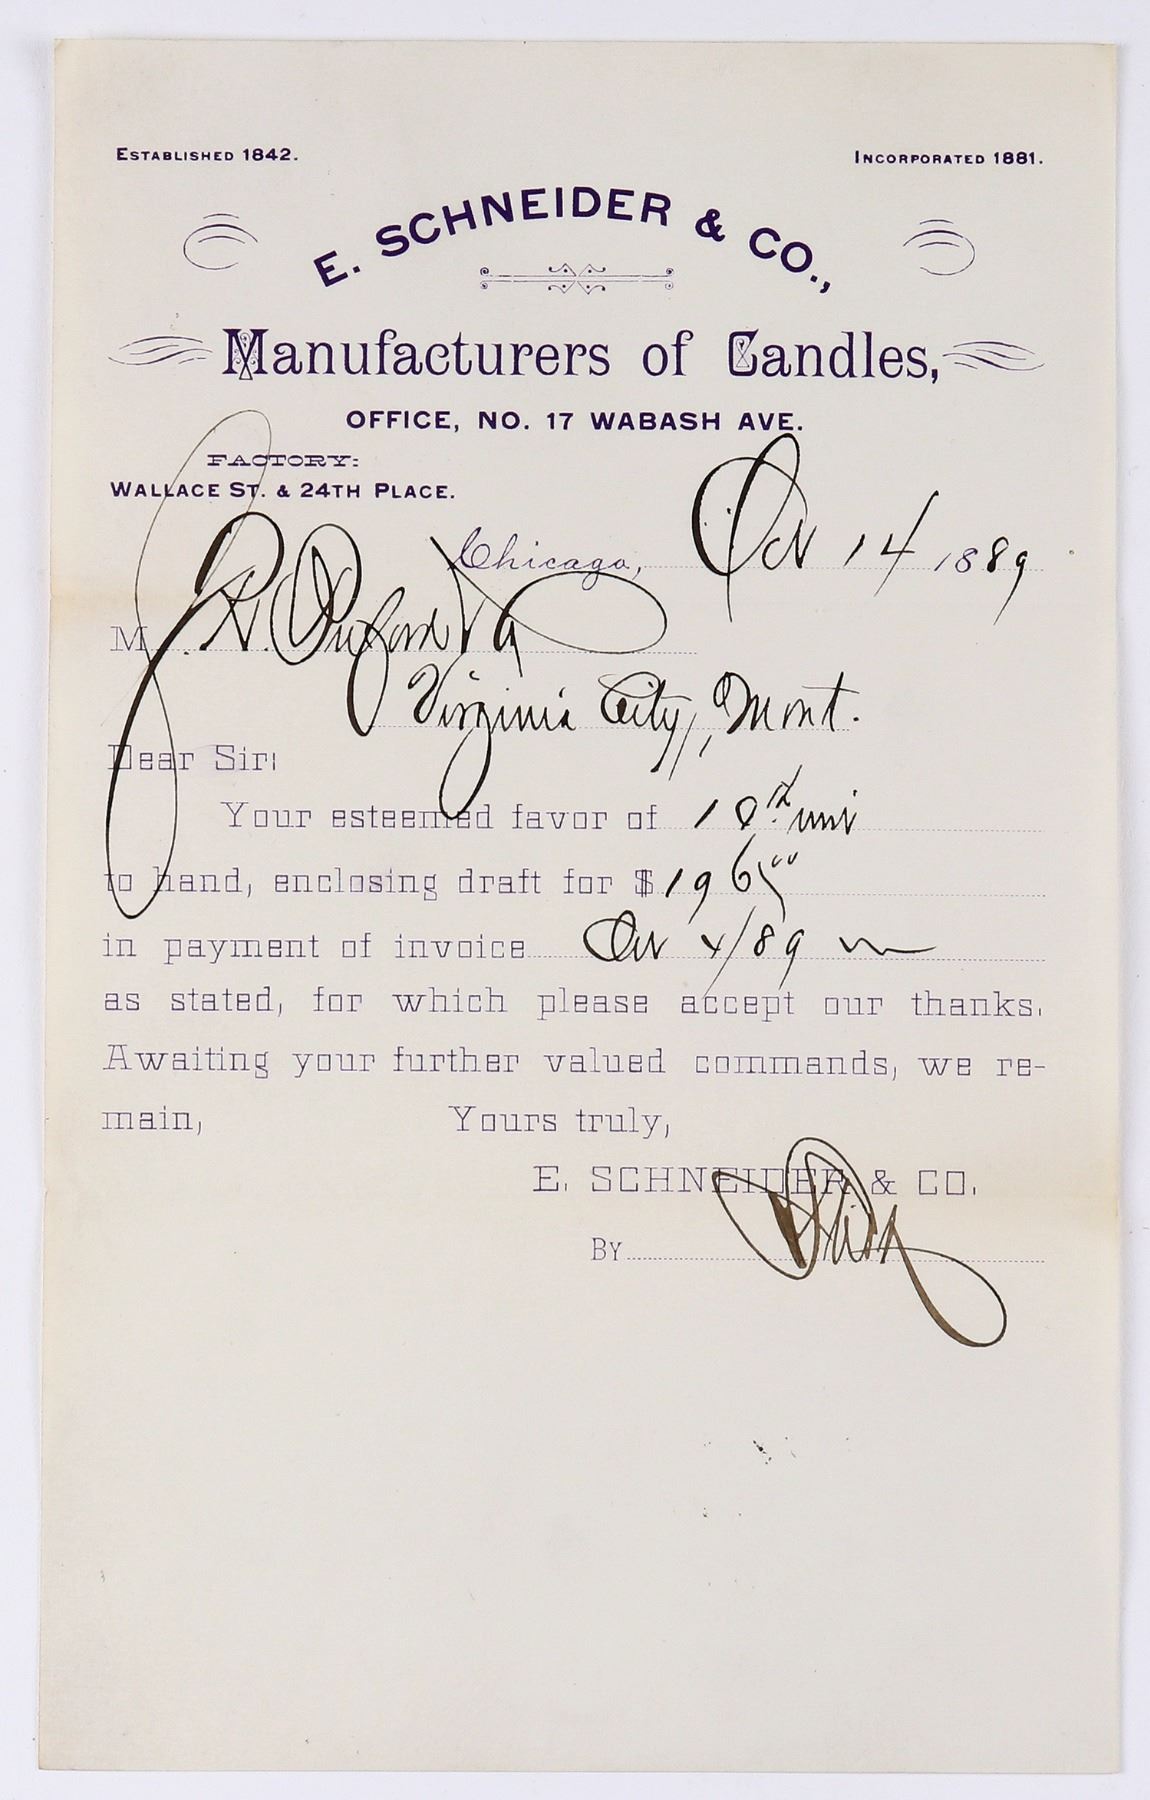 ESTABLISHED 1842. INCORPORATED 1881.
E. SCHNEIDER & CO.,
Manufacturers of Candles,
OFFICE, NO. 17 WABASH AVE.
FACTORY:
WALLACE ST. & 24TH PLACE.
Chicago, Oct 14 1889
M
Virginia City, Mont.
Dear Sir:
Your esteemed favor of 10th
to hand, enclosing draft for $196
in payment of invoice Oct 4/89
as stated, for which please accept our thanks.
Awaiting your further valued commands, we re-
main, Yours truly,
E. SCHNEIDER & CO.
BY